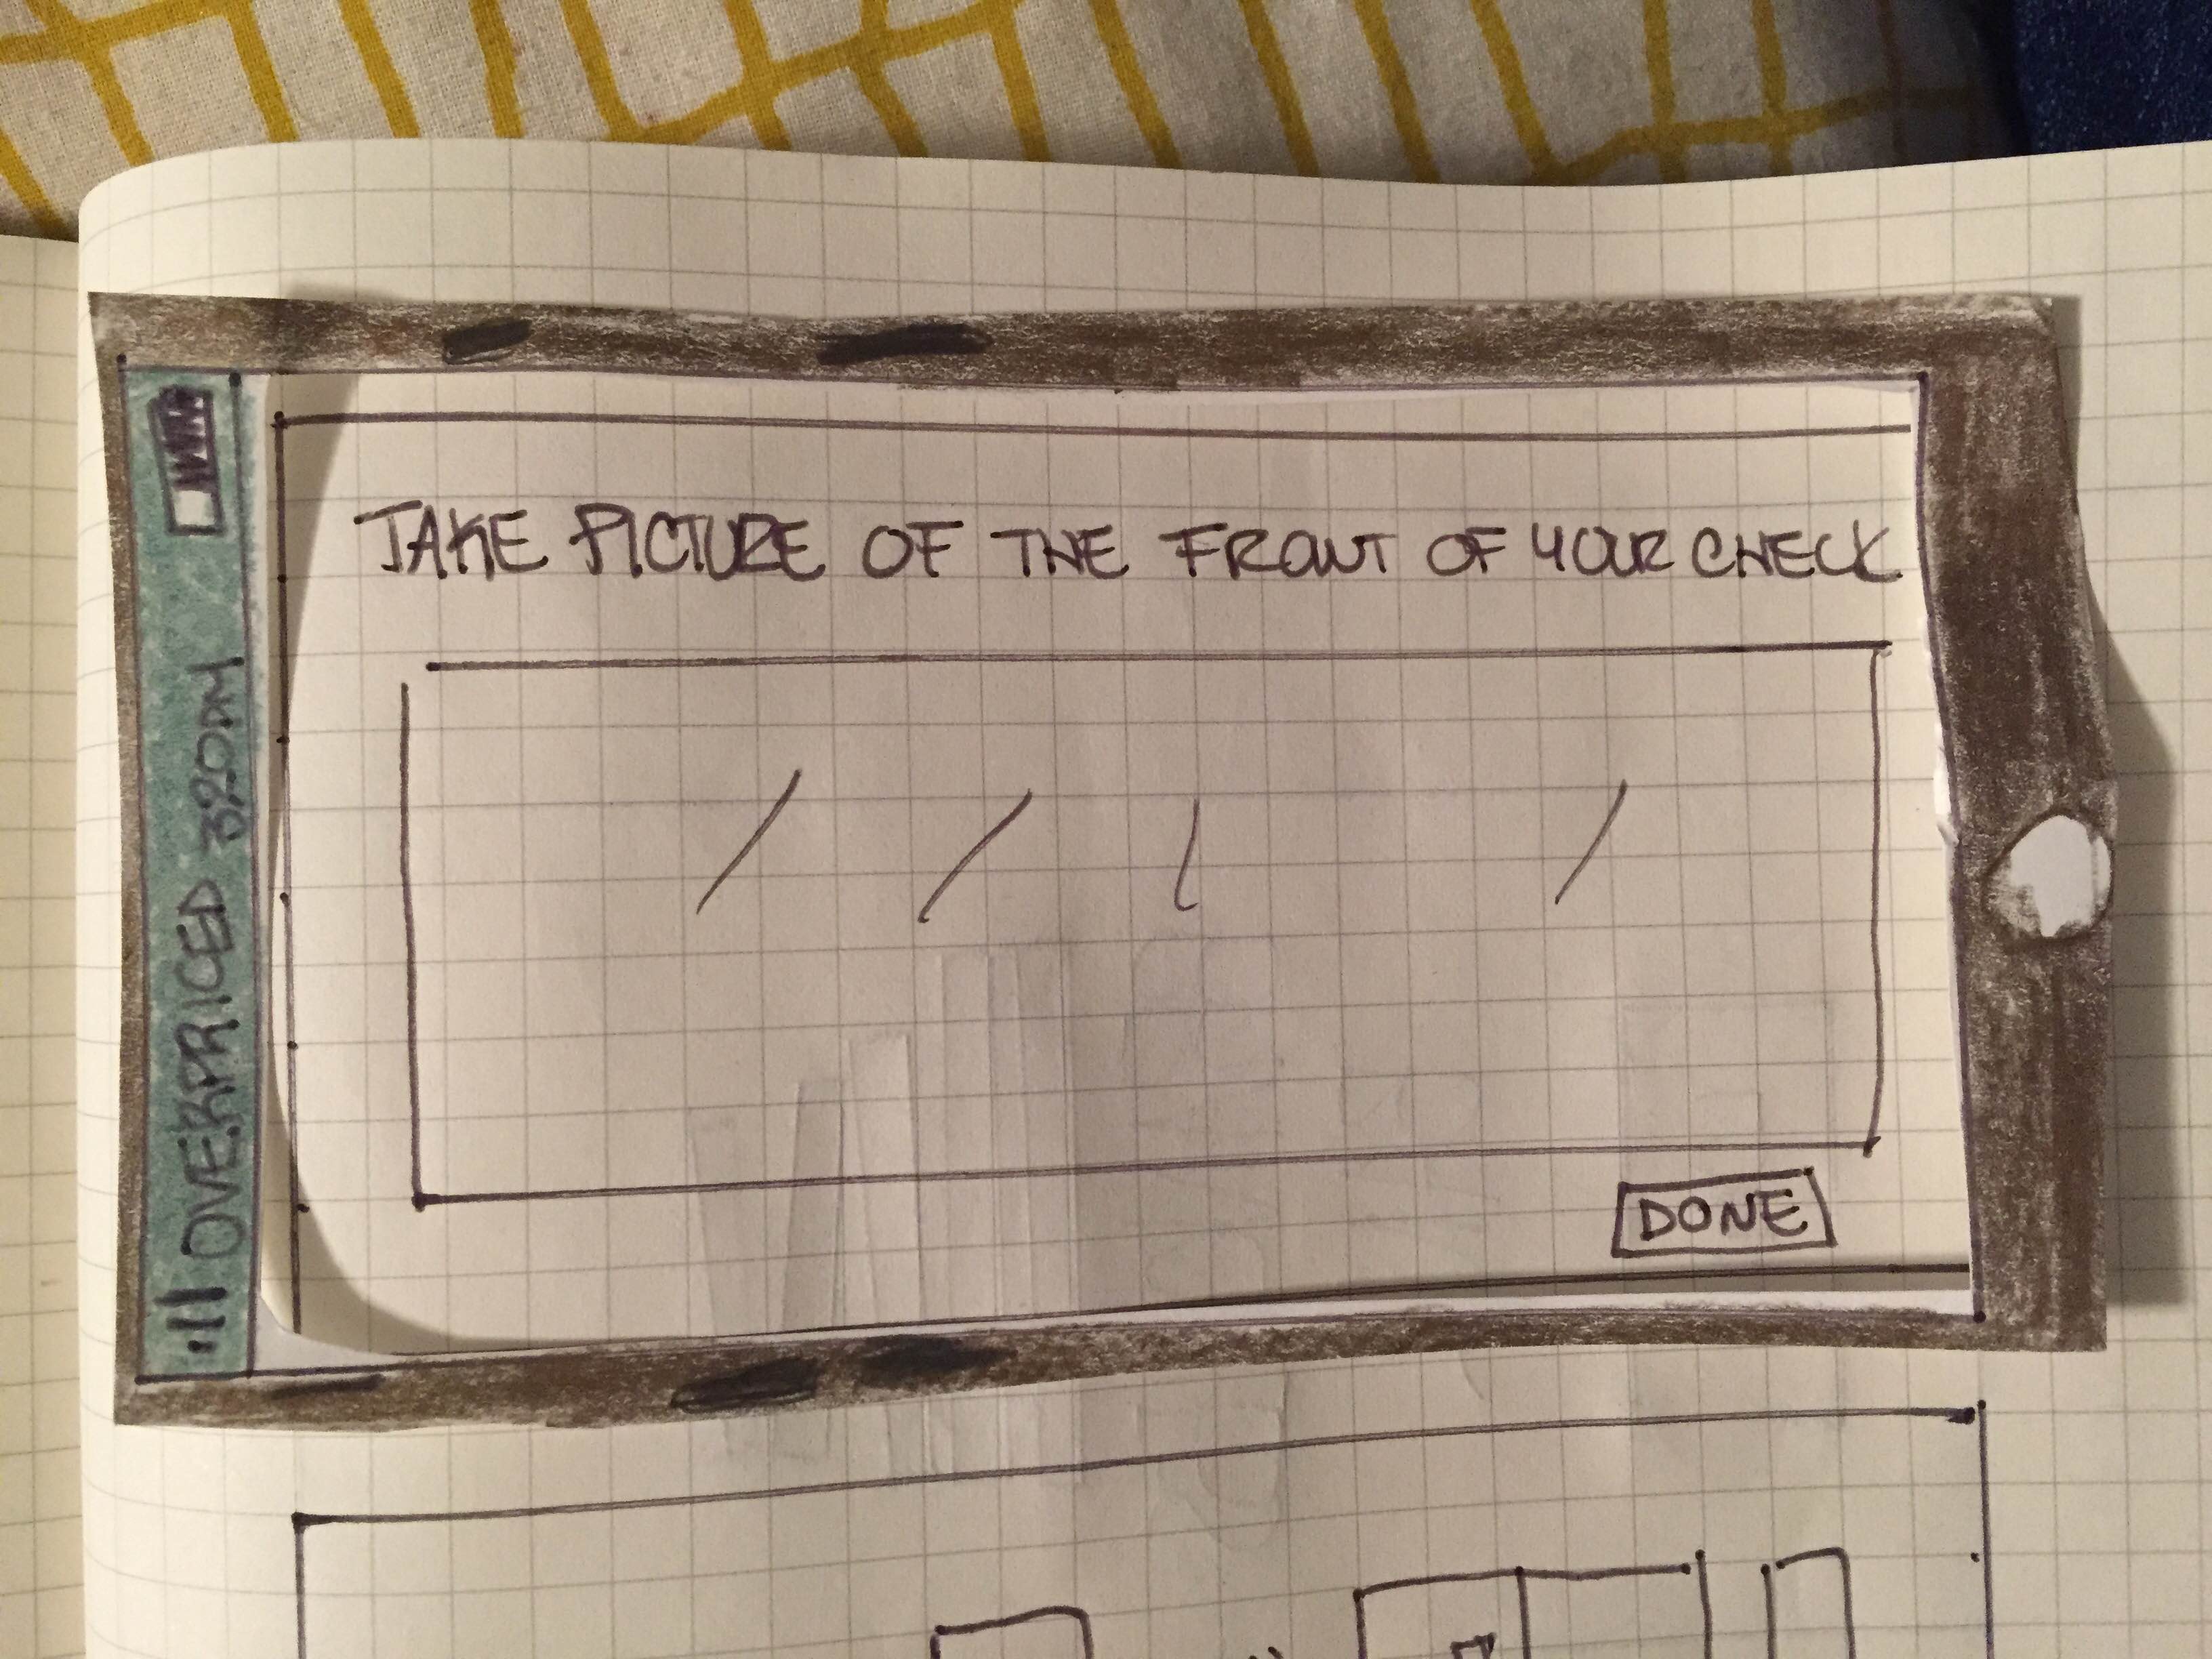 OVERPRICED 320PM
TAKE PICTURE OF THE FRONT OF YOUR CHECK
DONE